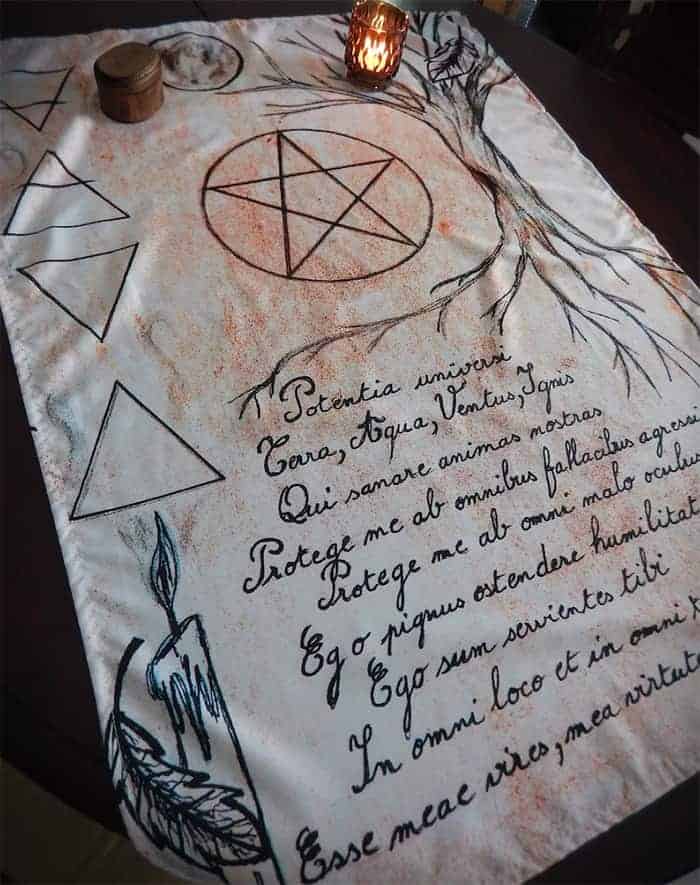 Potentia universi
Terra, Aqua, Ventus, Ignis
Qui sanare animas nostras
Protege me ab omnibus fallacibus
Protege me ab omni malo
Ego pignus ostendere
Ego sum servientes tibi
In omni loco et in omni
Esse meae vires, mea